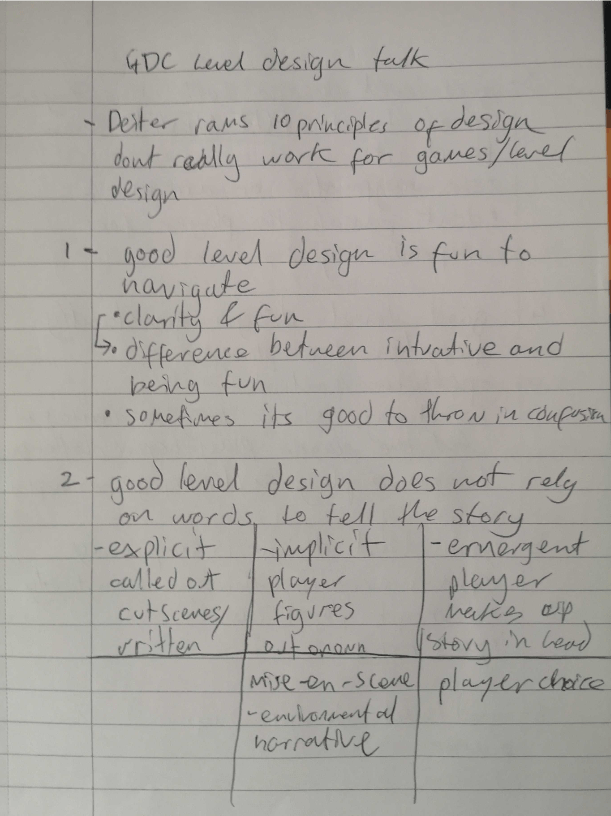 GDC Level design talk
- Deiter rams 10 principles of design
dont really work for games/level
design
1 - good level design is fun to
navigate
• clarity & fun
↳• difference between intuative and
being fun
• sometimes its good to throw in confusion
2 - good level design does not rely
on words to tell the story
- explicit
called out
cutscenes/
written
- implicit
player
figures
out on own
mise-en-scene
- enviromental
narrative
- emergent
player
makes up
story in head
player choice